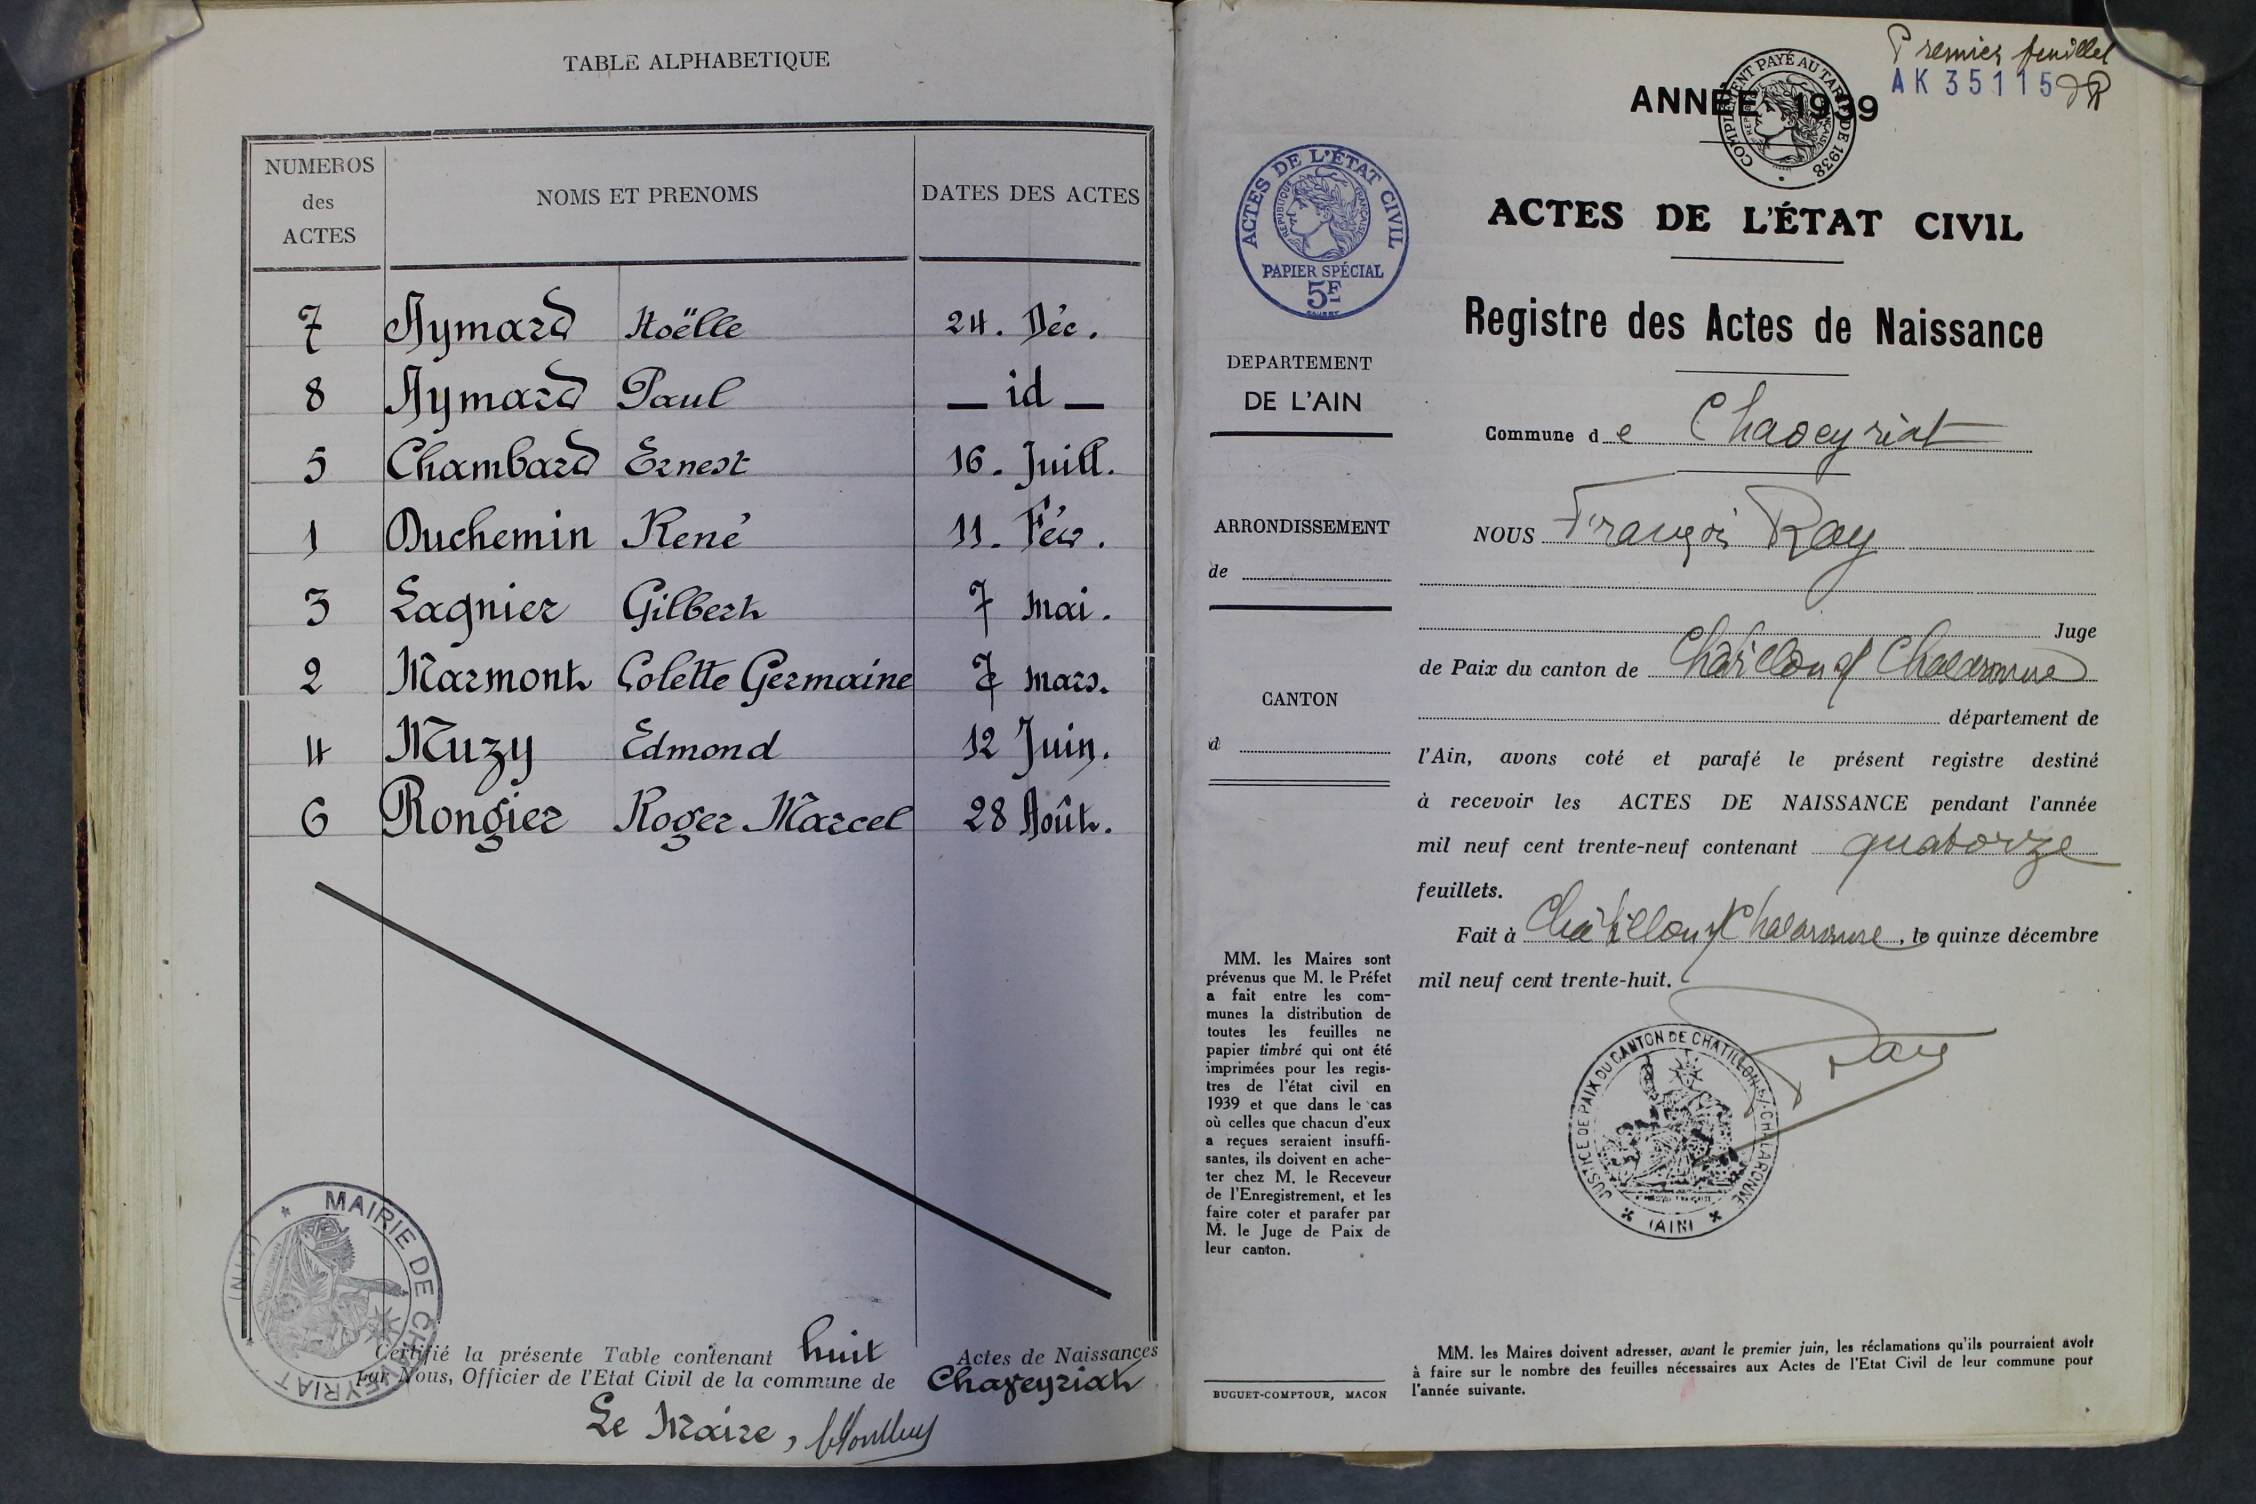 TABLE ALPHABETIQUE
NUMEROS des ACTES
NOMS ET PRENOMS
DATES DES ACTES
7 Aymard Noëlle 24. Déc.
8 Aymard Paul — id —
5 Chambard Ernest 16. Juill.
1 Duchemin René 11. Fév.
3 Lagnier Gilbert 7 mai.
2 Marmont Colette Germaine 7 mars.
4 Muzy Edmond 12 Juin.
6 Rongier Roger Marcel 28 Août.
MAIRIE DE CHAVEYRIAT (AIN)
Certifié la présente Table contenant huit Actes de Naissances
par Nous, Officier de l'Etat Civil de la commune de Chaveyriat
Le Maire,
Premier feuillet
AK 35115
ANNÉE 1939
COMPLÉMENT PAYÉ AU TARIF DE 1938
RÉPUBLIQUE FRANÇAISE
ACTES DE L'ÉTAT CIVIL
RÉPUBLIQUE FRANÇAISE
PAPIER SPÉCIAL
5F
DEPARTEMENT
DE L'AIN
ARRONDISSEMENT
de
CANTON
d
MM. les Maires sont
prévenus que M. le Préfet
a fait entre les com-
munes la distribution de
toutes les feuilles ne
papier timbré qui ont été
imprimées pour les regis-
tres de l'état civil en
1939 et que dans le cas
où celles que chacun d'eux
a reçues seraient insuffi-
santes, ils doivent en ache-
ter chez M. le Receveur
de l'Enregistrement, et les
faire coter et parafer par
M. le Juge de Paix de
leur canton.
BUGUET-COMPTOUR, MACON
ACTES DE L'ÉTAT CIVIL
Registre des Actes de Naissance
Commune de Chaveyriat
NOUS François Ray
Juge
de Paix du canton de Châtillon s/ Chalaronne
département de
l'Ain, avons coté et parafé le présent registre destiné
à recevoir les ACTES DE NAISSANCE pendant l'année
mil neuf cent trente-neuf contenant quatorze
feuillets.
Fait à Châtillon s/ Chalaronne, le quinze décembre
mil neuf cent trente-huit.
Ray
JUSTICE DE PAIX DU CANTON DE CHATILLON-S/-CHALARONNE
(AIN)
MM. les Maires doivent adresser, avant le premier juin, les réclamations qu'ils pourraient avoir
à faire sur le nombre des feuilles nécessaires aux Actes de l'Etat Civil de leur commune pour
l'année suivante.